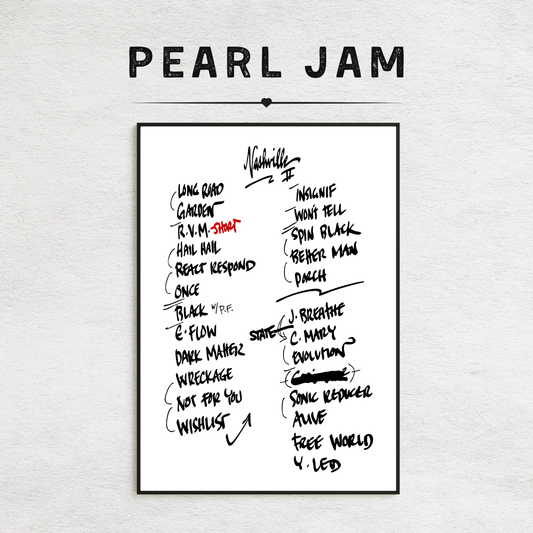 PEARL JAM
Nashville
II
LONG ROAD
GARDEN
R.V.M. SHORT
HAIL HAIL
REACT RESPOND
ONCE
BLACK W/ P.F.
E. FLOW
DARK MATTER
WRECKAGE
NOT FOR YOU
WISHLIST
INSIGNIF
WON'T TELL
SPIN BLACK
BETTER MAN
PORCH
J. BREATHE
STATE C. MARY
EVOLUTION
SONIC REDUCER
ALIVE
FREE WORLD
Y. LED